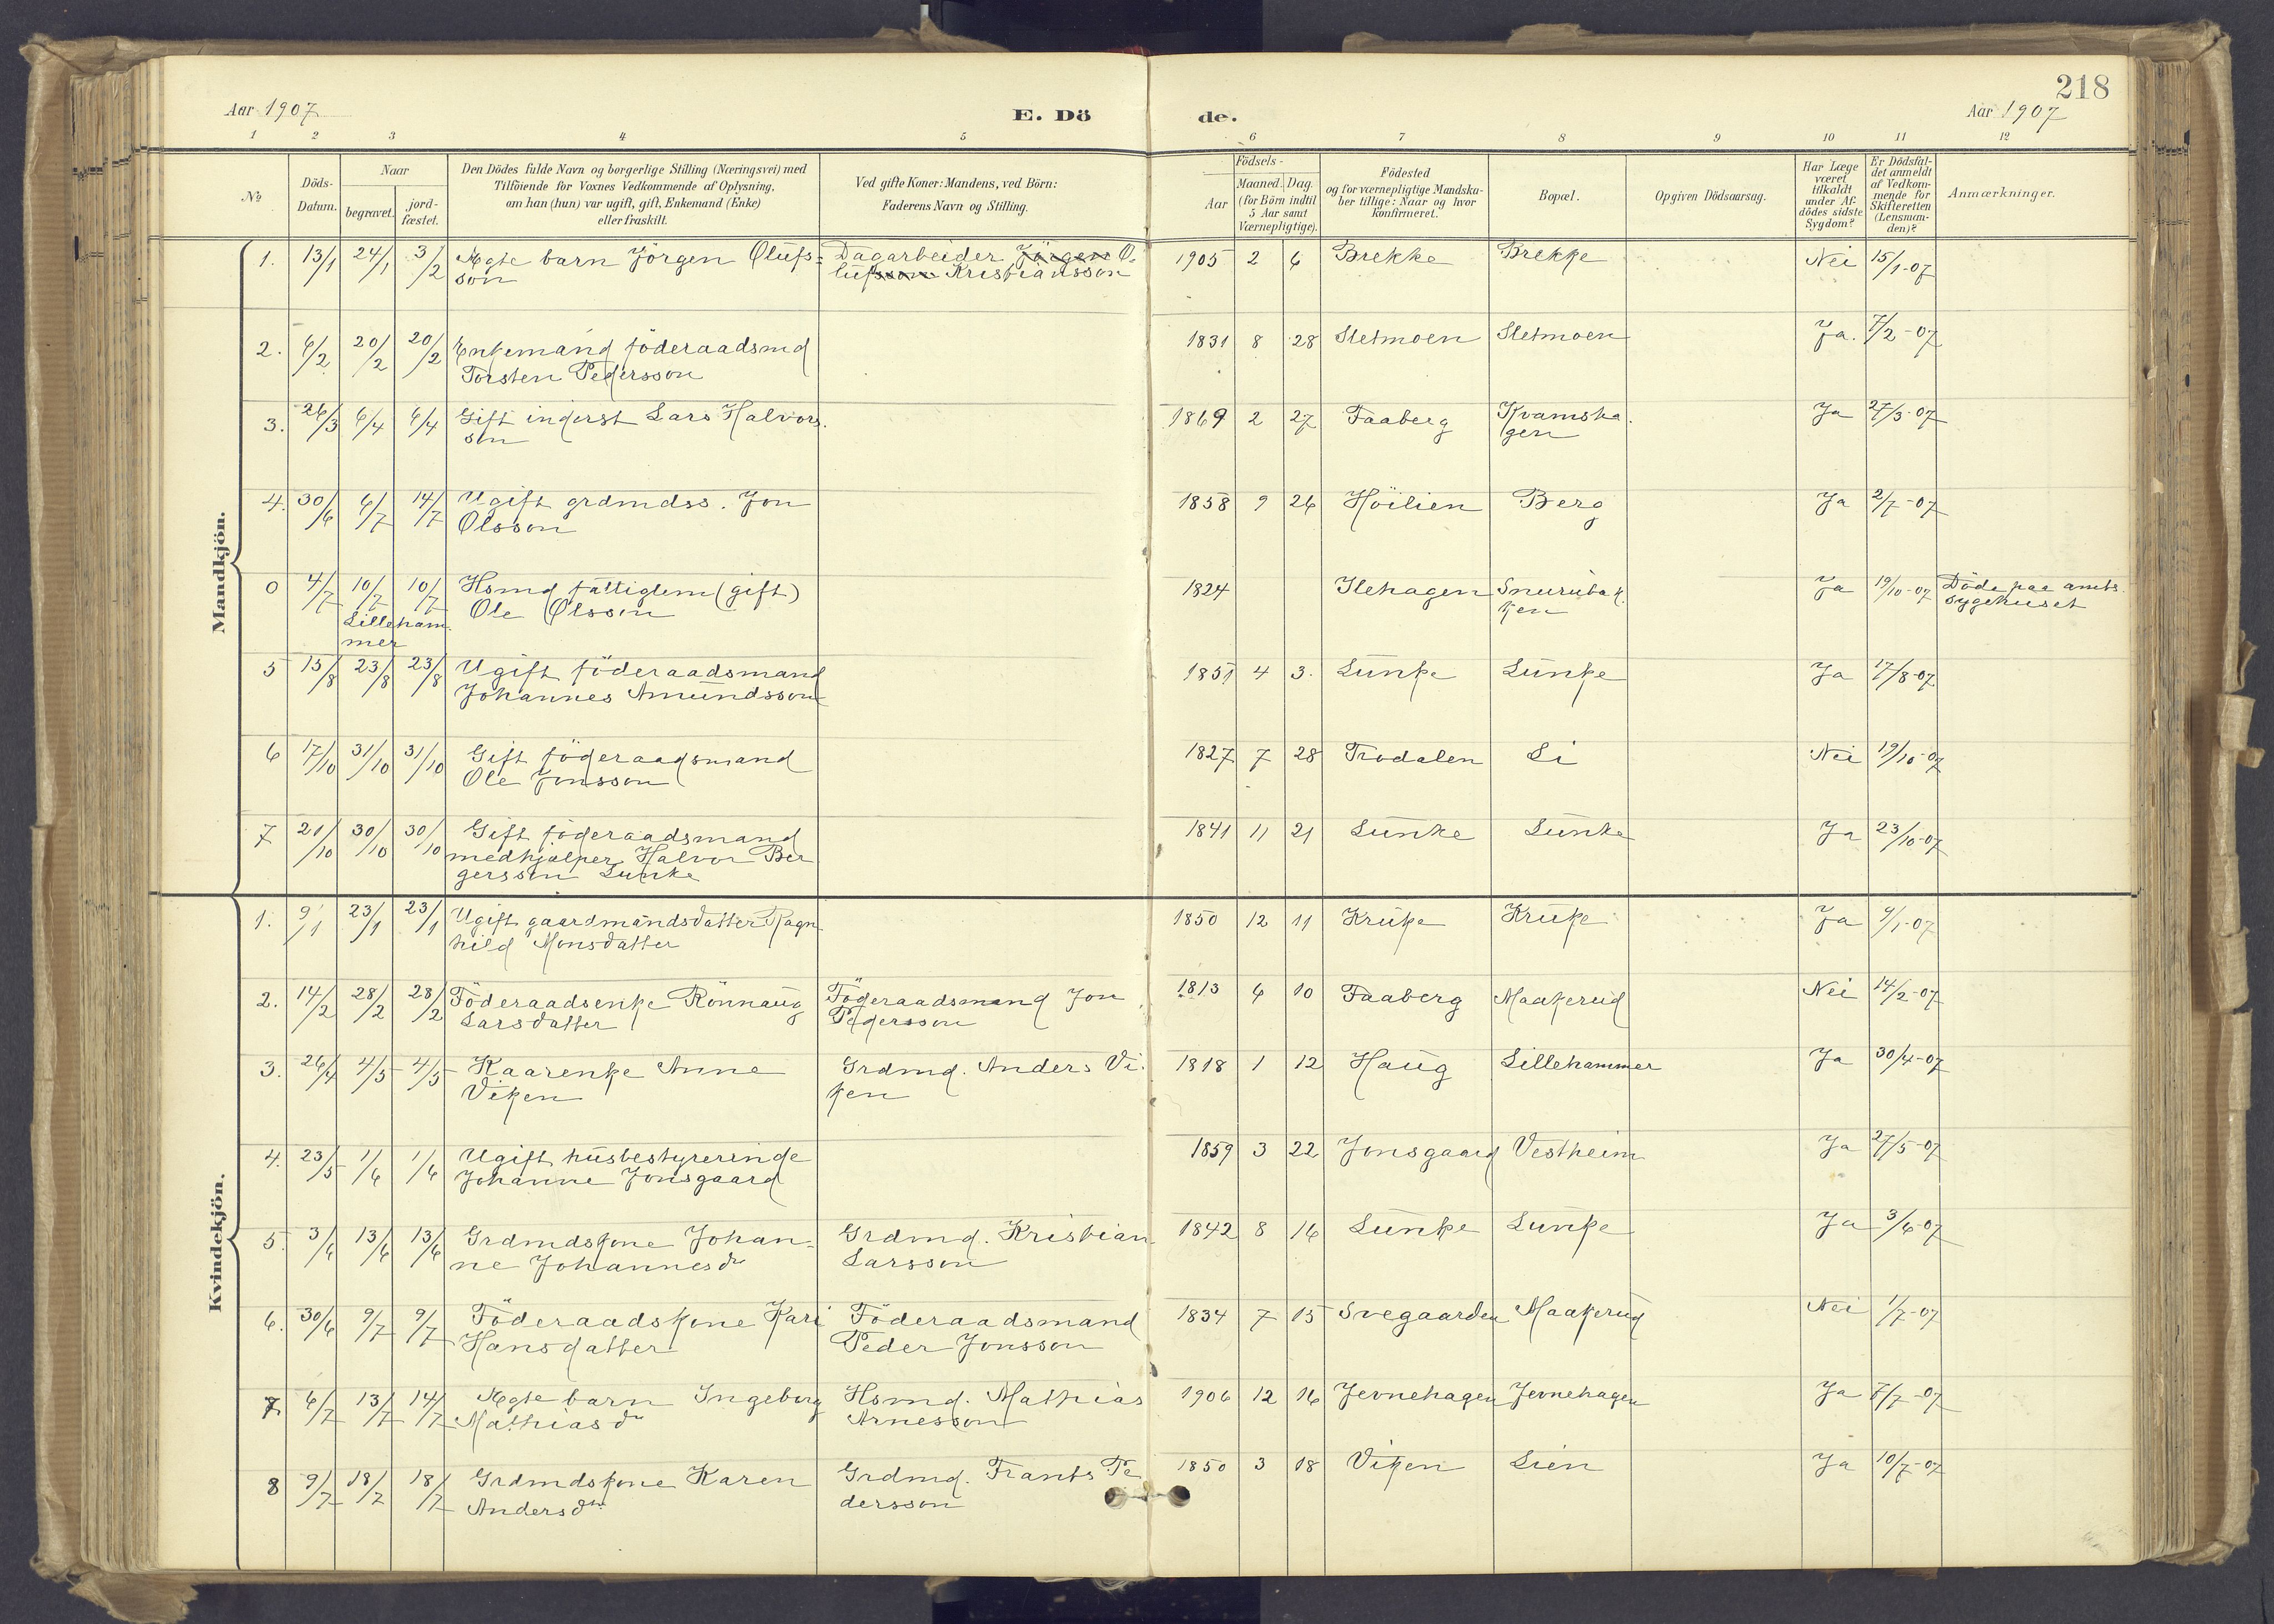 218
Aar 1907 E. Dö de. Aar 1907
1 2 3 4 5 6 7 8 9 10 11 12
№
Döds-
Datum.
Naar
begravet.
jord-
fæstet.
Den Dödes fulde Navn og borgerlige Stilling (Næringsvei) med
Tilföiende for Voxnes Vedkommende af Oplysning,
om han (hun) var ugift, gift, Enkemand (Enke)
eller fraskilt.
Ved gifte Koner: Mandens, ved Börn:
Faderens Navn og Stilling.
Födsels-
Aar
Maaned. Dag.
(for Börn indtil
5 Aar samt
Værnepligtige).
Födested
og for værnepligtige Mandska-
ber tillige: Naar og hvor
konfirmeret.
Bopæl.
Opgiven Dödsaarsag.
Har Læge
været
tilkaldt
under Af-
dödes sidste
Sygdom?
Er Dödsfal-
det anmeldt
af Vedkom-
mende for
Skifteretten
(Lensman-
den)?
Anmærkninger.
Mandkjön.
1. 13/1 24/1 3/2 Ægte barn Jörgen Olufs= Dagarbeider Jörgen O- 1905 2 6 Brekke Brekke Nei 15/1-07
son lufsson Kristiansson
2. 6/2 20/2 20/2 Enkemand föderaadsmd 1831 8 28 Sletmoen Sletmoen Ja. 7/2-07
Torsten Pedersson
3. 26/3 6/4 6/4 Gift inderst Lars Halvors- 1869 2 27 Faaberg Kvamsha- Ja 27/3-07
son gen
4. 30/6 6/7 14/7 Ugift grdmdss. Jon 1858 9 26 Höilien Berg Ja 2/7-07
Olsson
0 4/7 10/7 10/7 Hsmd fattiglem (gift) 1824 Ilehagen Snurubak- Ja 19/10-07 Döde paa amts-
Lilleham- Ole Olsson ken sygehuset
mer
5 15/8 23/8 23/8 Ugift föderaadsmand 1851 4 3. Lunke Lunke Ja 17/8-07
Johannes Amundsson
6 17/10 31/10 31/10 Gift föderaadsmand 1827 7 28 Trodalen Li Nei 19/10-07
Ole Jonsson
7 21/10 30/10 30/10 Gift föderaadsmand 1841 11 21 Lunke Lunke Ja 23/10-07
medhjælper Halvor Ber
gersson Lunke
Kvindekjön.
1. 9/1 23/1 23/1 Ugift gaardmandsdatter Ragn- 1850 12 11 Kruke Kruke Ja 9/1-07
hild Monsdatter
2. 14/2 28/2 28/2 Föderaadsenke Rönnaug Föderaadsmand Jon 1813 6 10 Faaberg Maakerud Nei 14/2-07
Larsdatter Pedersson
3. 26/4 4/5 4/5 Kaarenke Anne Grdmd. Anders Vi- 1818 1 12 Haug Lillehammer Ja 30/4-07
Viken ken
4. 23/5 1/6 1/6 Ugift husbestyrerinde 1859 3 22 Jonsgaard Vestheim Ja 27/5-07
Johanne Jonsgaard
5. 3/6 13/6 13/6 Grdmdskone Johan- Grdmd. Kristian 1842 8 16 Lunke Lunke Ja 3/6-07
ne Johannesdr Larsson
6. 30/6 9/7 9/7 Föderaadskone Kari Föderaadsmand 1834 7 15 Svegaarden Maakerud Nei 1/7-07
Hansdatter Peder Jonsson
7 6/7 13/7 14/7 Ægte barn Ingeborg Hsmd. Mathias 1906 12 16 Jevnehagen Jevnehagen Ja 7/7-07
Mathiasdr Arnesson
8 9/7 18/7 18/7 Grdmdskone Karen Grdmd. Frants Pe 1850 3 18 Viken Lien Ja 10/7-07
Andersdtr dersson